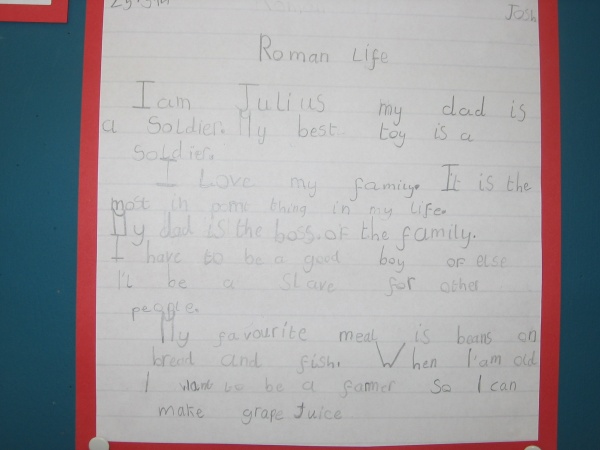 Josh
Roman Life
I am Julius my dad is
a Soldier. My best toy is a
Soldier.
I Love my family. It is the
most in pome thing in my life.
My dad is the boss. of the family.
I have to be a good boy or else
I'll be a Slave for other
people.
My favourite meal is beans on
bread and fish. When I'am old
I want to be a famer so I can
make grape Juice